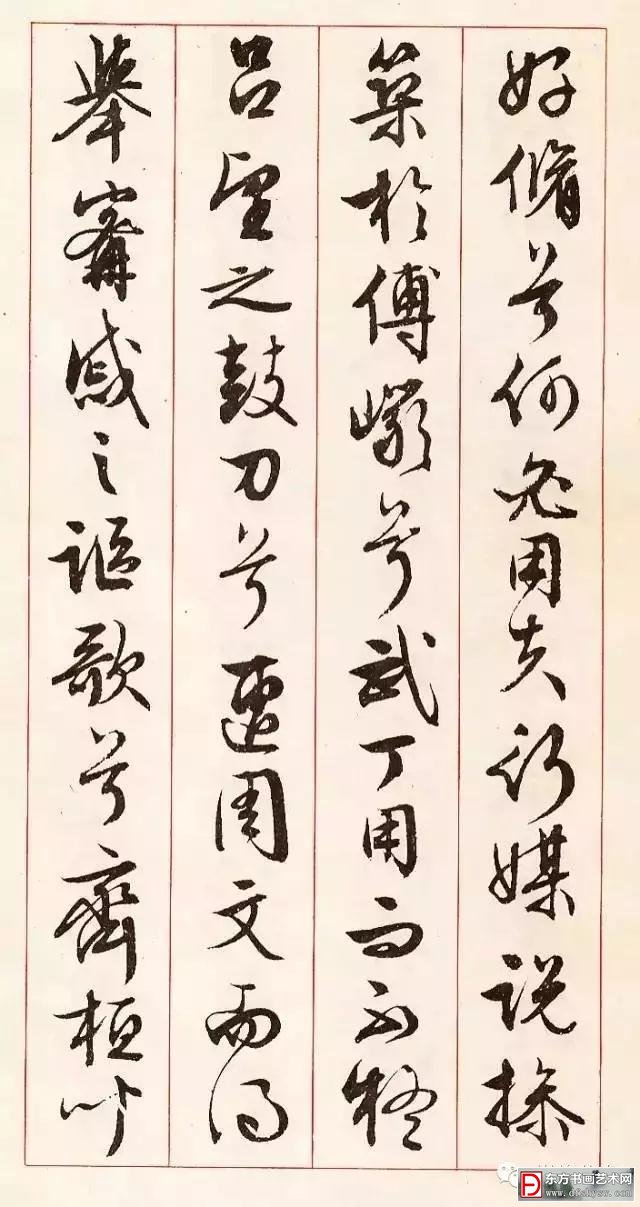 好脩兮何必用夫行媒說操
築於傅巖兮武丁用而不疑
呂望之鼓刀兮遭周文而得
舉甯戚之謳歌兮齊桓聞
东方书画艺术网